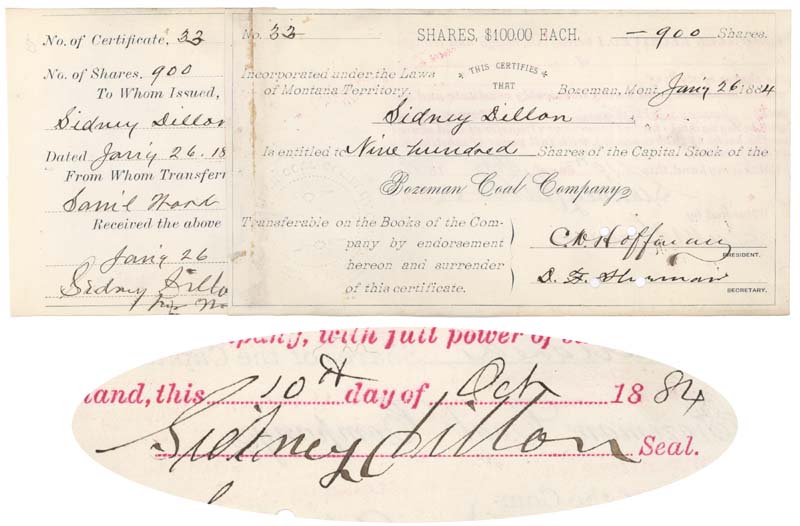 No. of Certificate, 33
No. of Shares, 900
To Whom Issued,
Sidney Dillon
Dated Jan'y 26. 18
From Whom Transfer
Sam'l Word
Received the above
Jan'y 26
Sidney Dillo
No. 33 SHARES, $100.00 EACH. — 900 Shares.
Incorporated under the Laws
of Montana Territory.
THIS CERTIFIES
THAT
Bozeman, Mont. Jan'y 26 1884
Sidney Dillon
Is entitled to Nine hundred Shares of the Capital Stock of the
Bozeman Coal Company,
Transferable on the Books of the Com-
pany by endorsement
hereon and surrender
of this certificate.
C.W. Hoffman
PRESIDENT.
D. F. Sherman
SECRETARY.
pany, with full power of
and, this 10th day of Oct 1884
Sidney Dillon Seal.